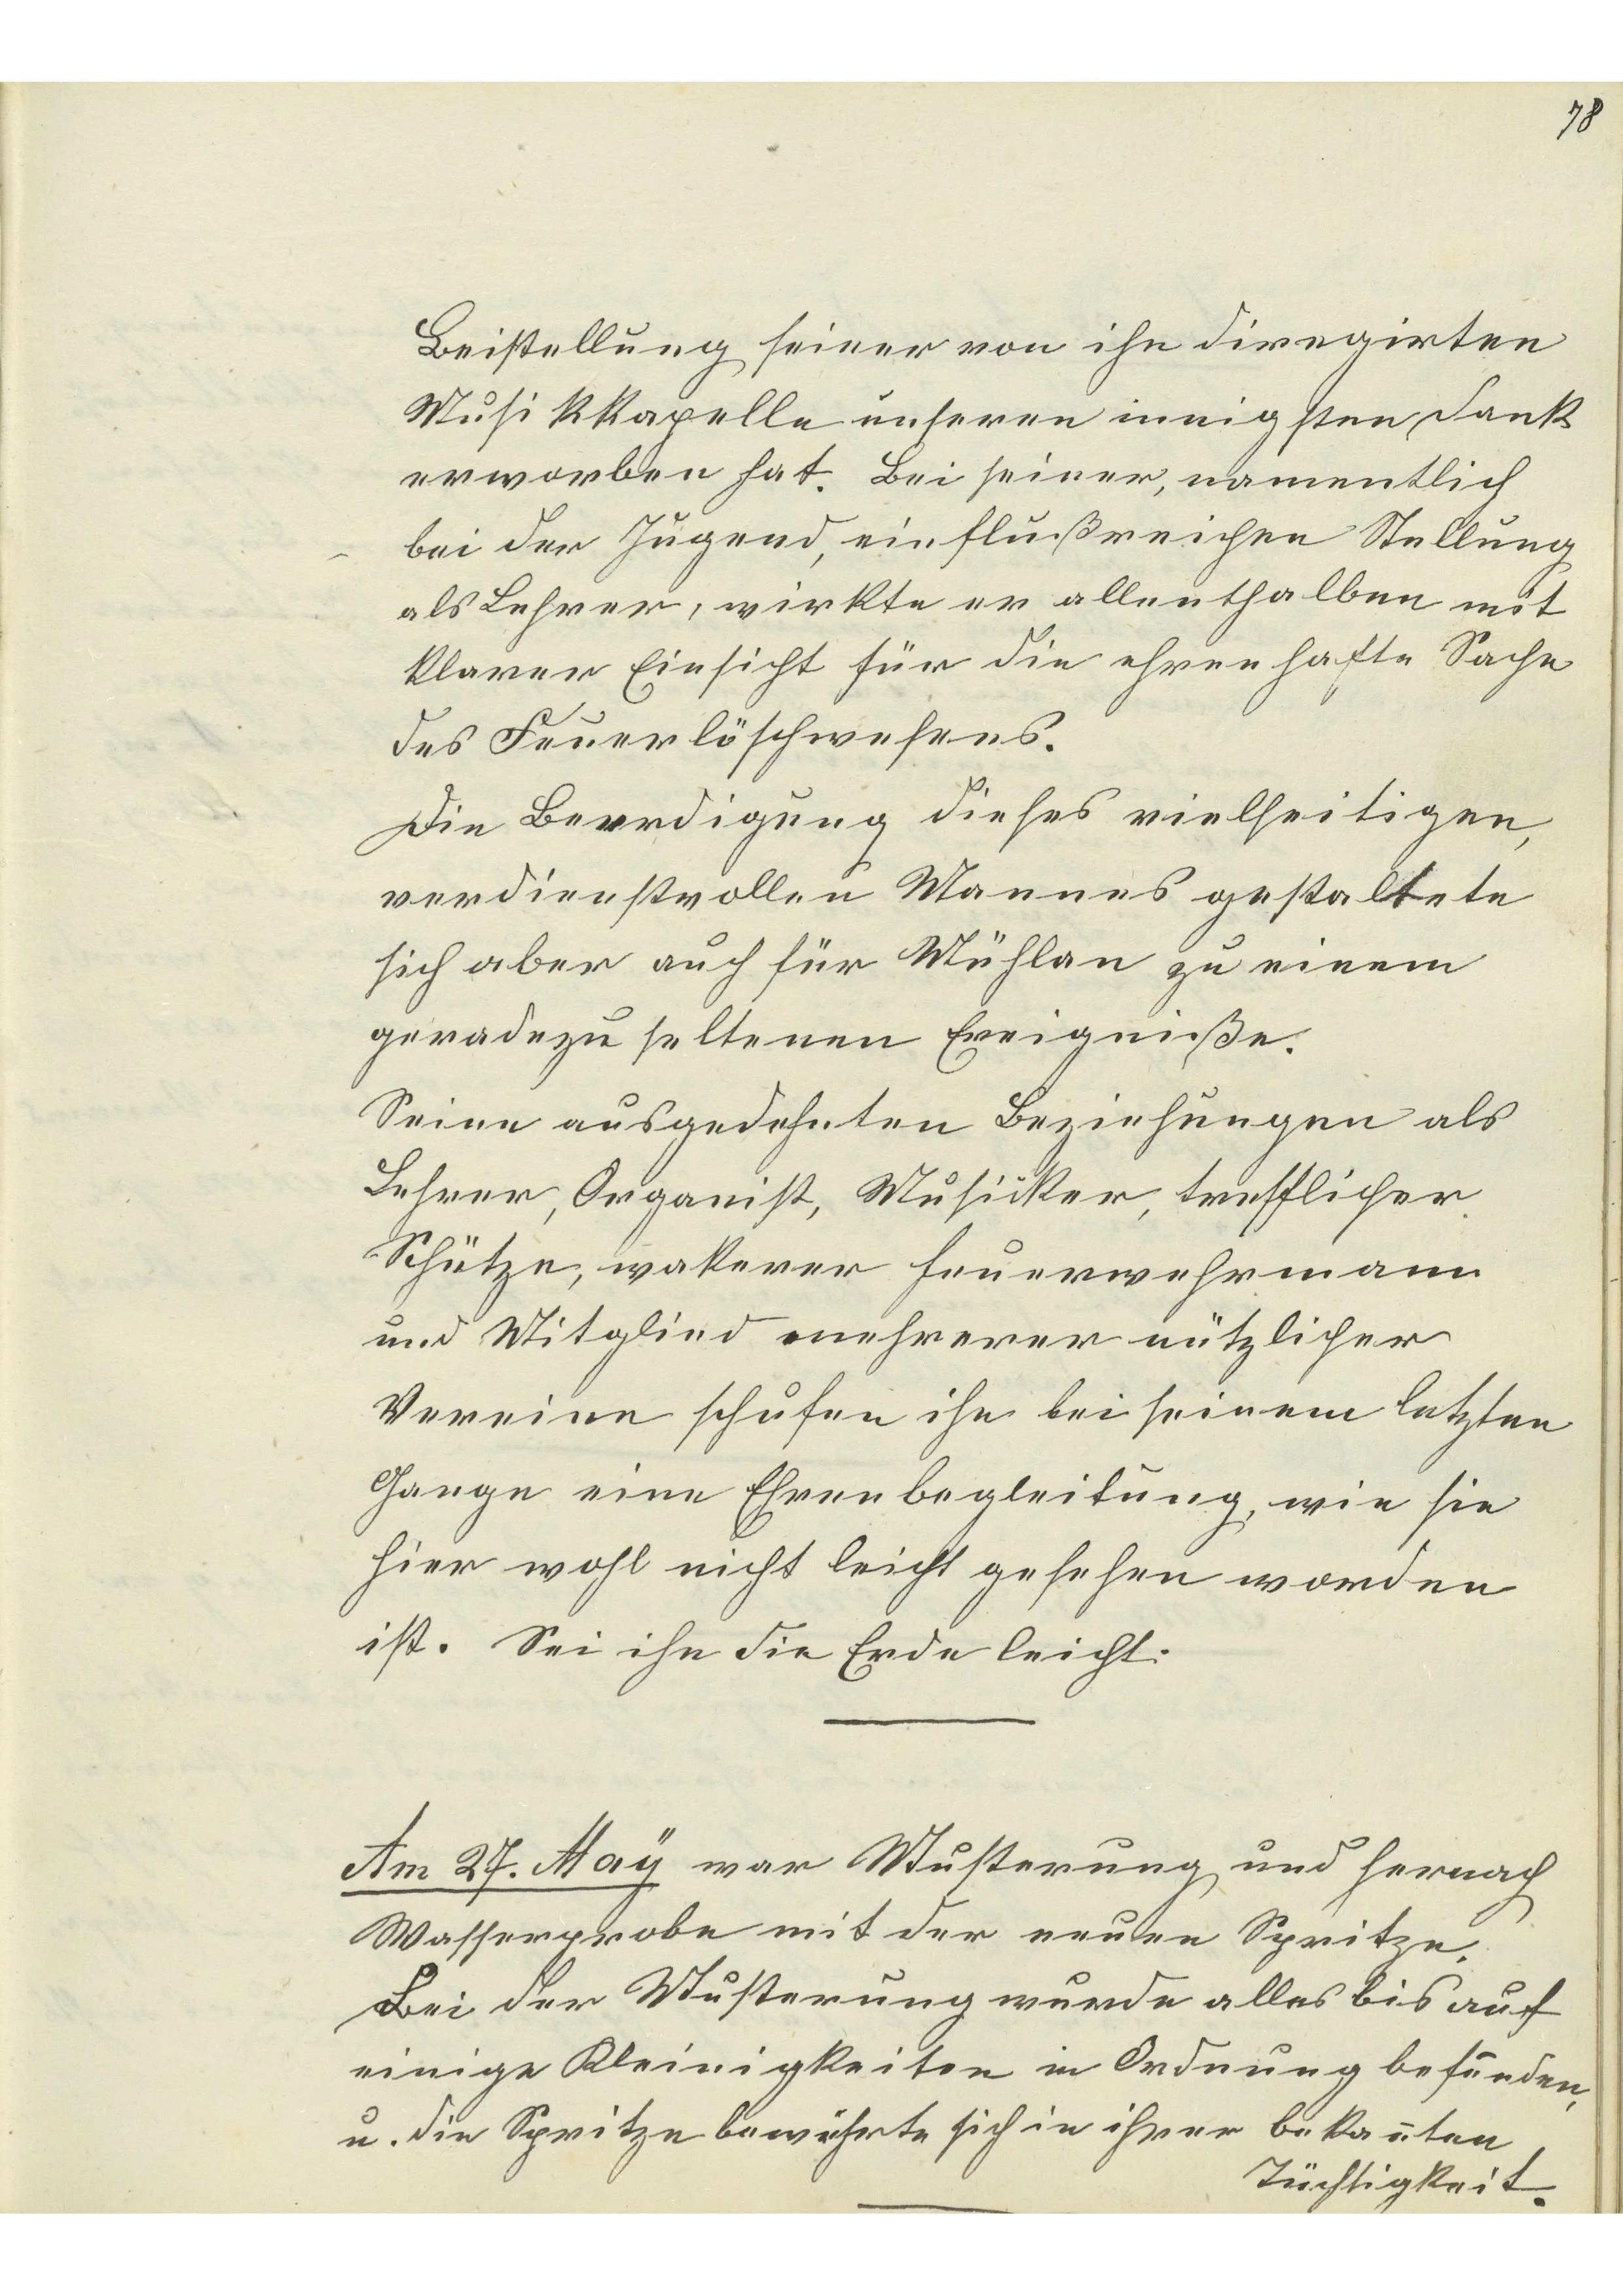 78
Beistellung seiner von ihm diregirten
Musikkapelle unseren innigsten Dank
erworben hat. Bei seiner, namentlich
bei der Jugend, einflußreichen Stellung
als Lehrer, wirkte er allenthalben mit
klarer Einsicht für die ehrenhafte Sache
des Feuerlöschwesens.
Die Beerdigung dieses vielseitigen,
verdienstvollen Mannes gestaltete
sich aber auch für Mühlau zu einem
geradezu seltenen Ereigniße.
Seine ausgedehnten Beziehungen als
Lehrer, Organist, Musiker, trefflicher
Schütze, wakerer Feuerwehrmann
und Mitglied mehrerer nützlicher
Vereine schufen ihm bei seinem letzten
Gange eine Ehrenbegleitung, wie sie
hier wohl nicht leicht gesehen worden
ist. Sei ihm die Erde leicht.
Am 27. Maÿ war Musterung und hernach
Wasserprobe mit der neuen Spritze.
Bei der Musterung wurde alles bis auf
einige Kleinigkeiten in Ordnung befunden,
u. die Spritze bewährte sich in ihrer bekan̄ten
Tüchtigkeit.